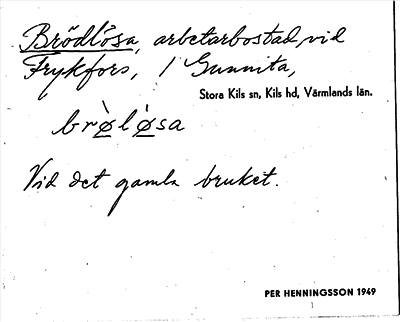 Brödlösa, arbetarbostad, vid
Frykfors, / Gunnita,
Stora Kils sn, Kils hd, Värmlands län.
brø̀lø̀sa
Vid det gamla bruket.
PER HENNINGSSON 1949